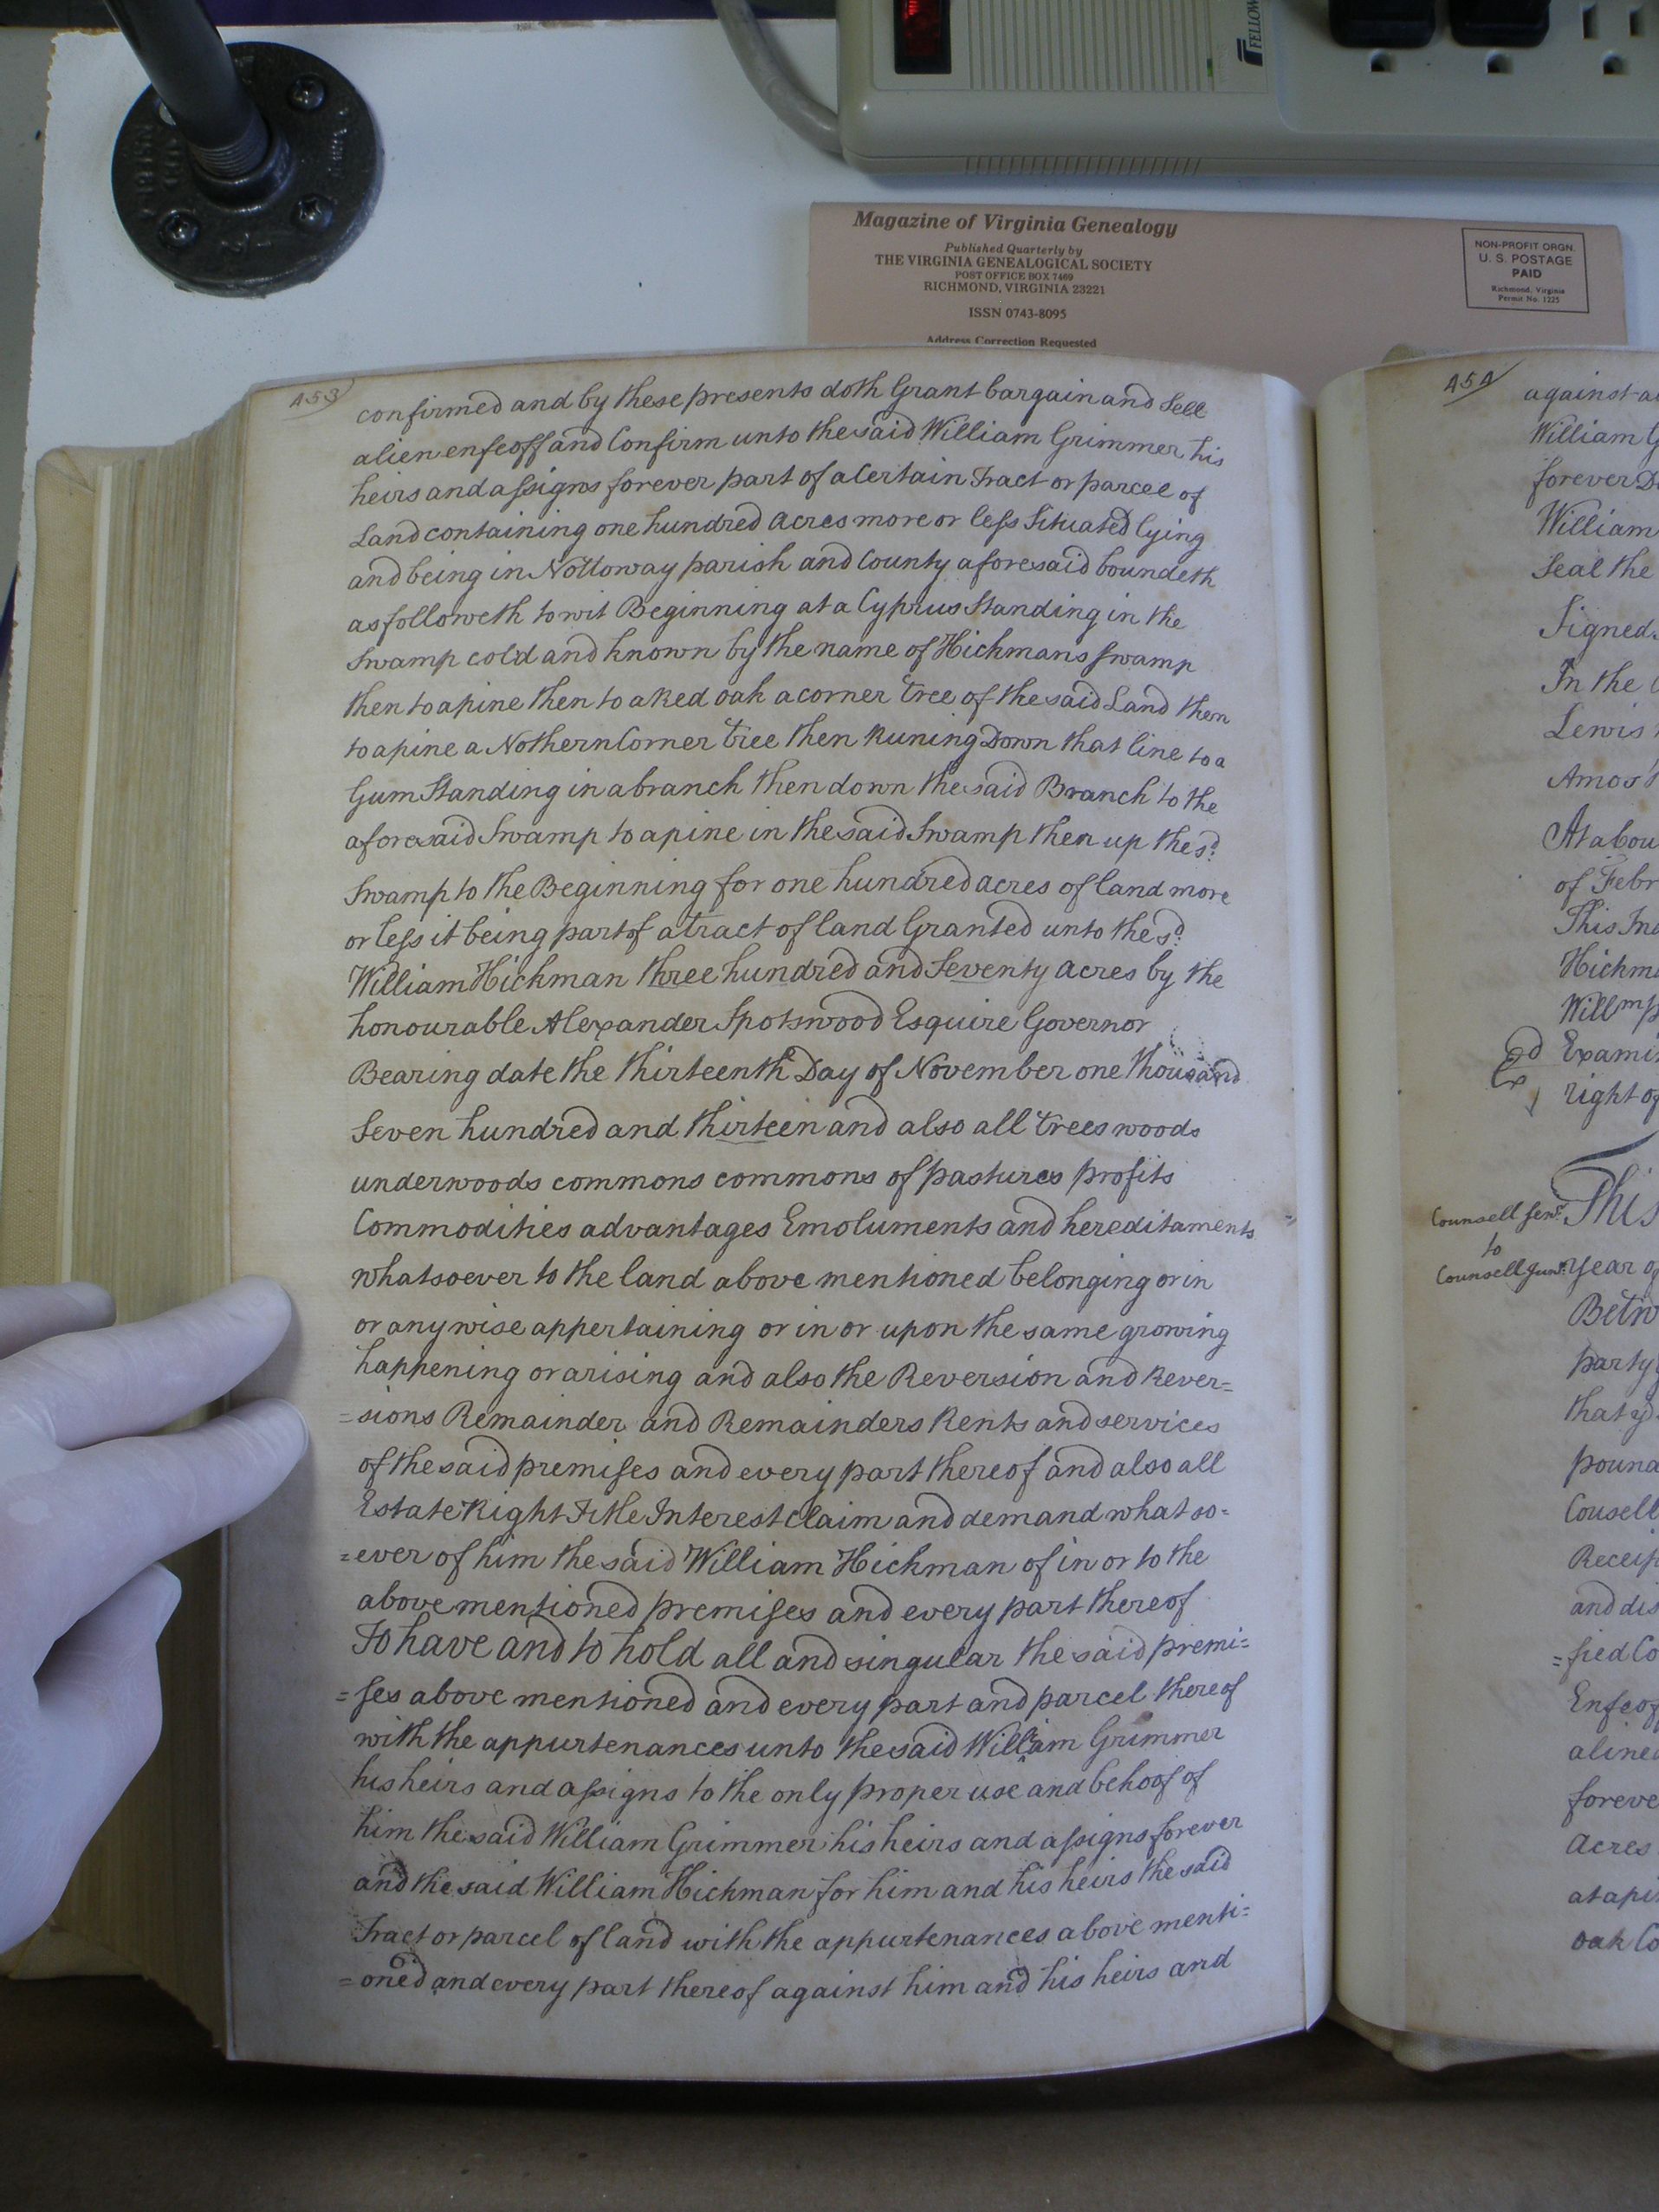 FELLOW
Magazine of Virginia Genealogy
Published Quarterly by
THE VIRGINIA GENEALOGICAL SOCIETY
POST OFFICE BOX 7469
RICHMOND, VIRGINIA 23221
ISSN 0743-8095
Address Correction Requested
NON-PROFIT ORGN.
U. S. POSTAGE
PAID
Richmond, Virginia
Permit No. 1225
453
confirmed and by these presents doth Grant bargain and Sell
alien enfeoff and Confirm unto the said William Grimmer his
heirs and assigns forever part of a Certain Tract or parcel of
Land containing one hundred acres more or less Situated lying
and being in Nottoway parish and County aforesaid boundeth
as followeth to wit Beginning at a Cyprus Standing in the
Swamp cold and known by the name of Hickmans Swamp
then to a pine then to a Red oak a corner tree of the said Land then
to a pine a Nothern Corner tree then Runing Down that line to a
Gum Standing in a branch then down the said Branch to the
aforesaid Swamp to a pine in the said Swamp then up the sd.
Swamp to the Beginning for one hundred acres of land more
or less it being part of a tract of land Granted unto the sd.
William Hickman three hundred and Seventy acres by the
honourable Alexander Spotswood Esquire Governor
Bearing date the thirteenth Day of November one thousand
Seven hundred and thirteen and also all trees woods
underwoods commons commons of pastures profits
Commodities advantages Emoluments and hereditaments
whatsoever to the land above mentioned belonging or in
or any wise appertaining or in or upon the same growing
happening or arising and also the Reversion and Rever=
=sions Remainder and Remainders Rents and services
of the said premises and every part thereof and also all
Estate Right Title Interest Claim and demand what so=
=ever of him the said William Hickman of in or to the
above mentioned premises and every part thereof
To have and to hold all and singular the said premi=
=ses above mentioned and every part and parcel thereof
with the appurtenances unto the said William Grimmer
his heirs and assigns to the only proper use and behoof of
him the said William Grimmer his heirs and assigns forever
and the said William Hickman for him and his heirs the said
Tract or parcel of land with the appurtenances above menti=
=oned and every part thereof against him and his heirs and
454
against
William
forever
William
Seal the
Signed
In the
Lewis
Amos
At a
of Febr
This
Hickm
Willm
Exami
right of
Counsell Senr.
to
Counsell Junr.
This
year
Betw
party
that
pound
Cousell
Receip
and dis
=fied Co
Enfeof
aline
foreve
acres
at a
oak Co